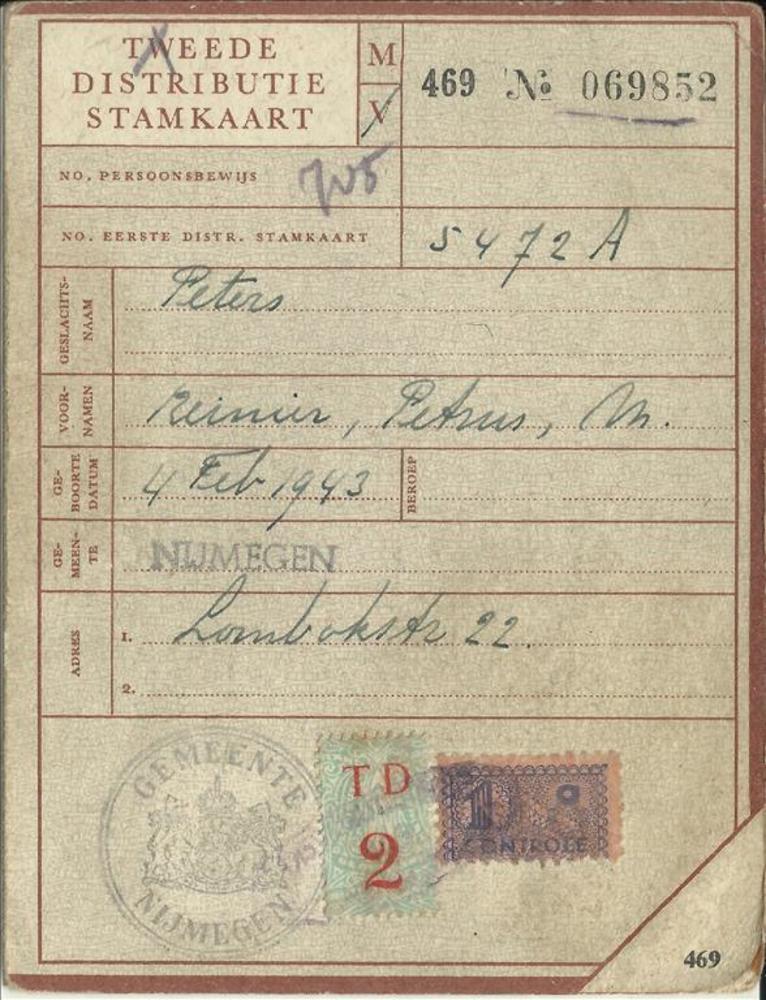 TWEEDE
DISTRIBUTIE
STAMKAART
M
V
469 № 069852
NO. PERSOONSBEWIJS
NO. EERSTE DISTR. STAMKAART
5472 A
GESLACHTS-
NAAM
Peters
VOOR-
NAMEN
Reinier, Petrus, M.
GE-
BOORTE
DATUM
4 Feb 1943
BEROEP
GE-
MEEN-
TE
NIJMEGEN
ADRES
1. Lombokstr 22.
2.
GEMEENTE
NIJMEGEN
TD
2
1e
CONTROLE
469